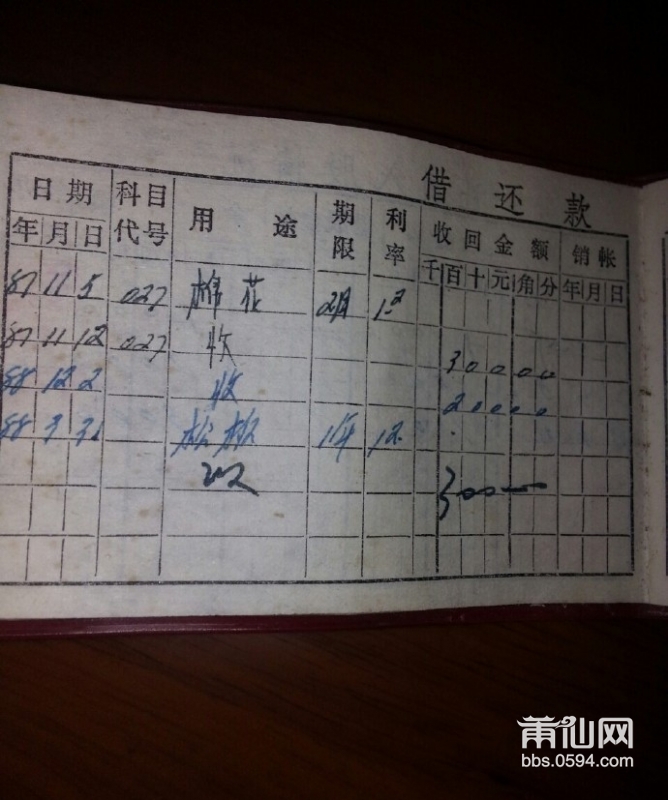 借 还 款
日 期 科目 用 途 期 利 收 回 金 额 销 帐
年 月 日 代号 限 率 千 百 十 元 角 分 年 月 日
87 11 5 027 棉花 2月 1.2
87 11 12 027 收 30000
88 12 2 收 20000
88 3 31 松板 1年 12
收 30000
莆仙网
bbs.0594.com